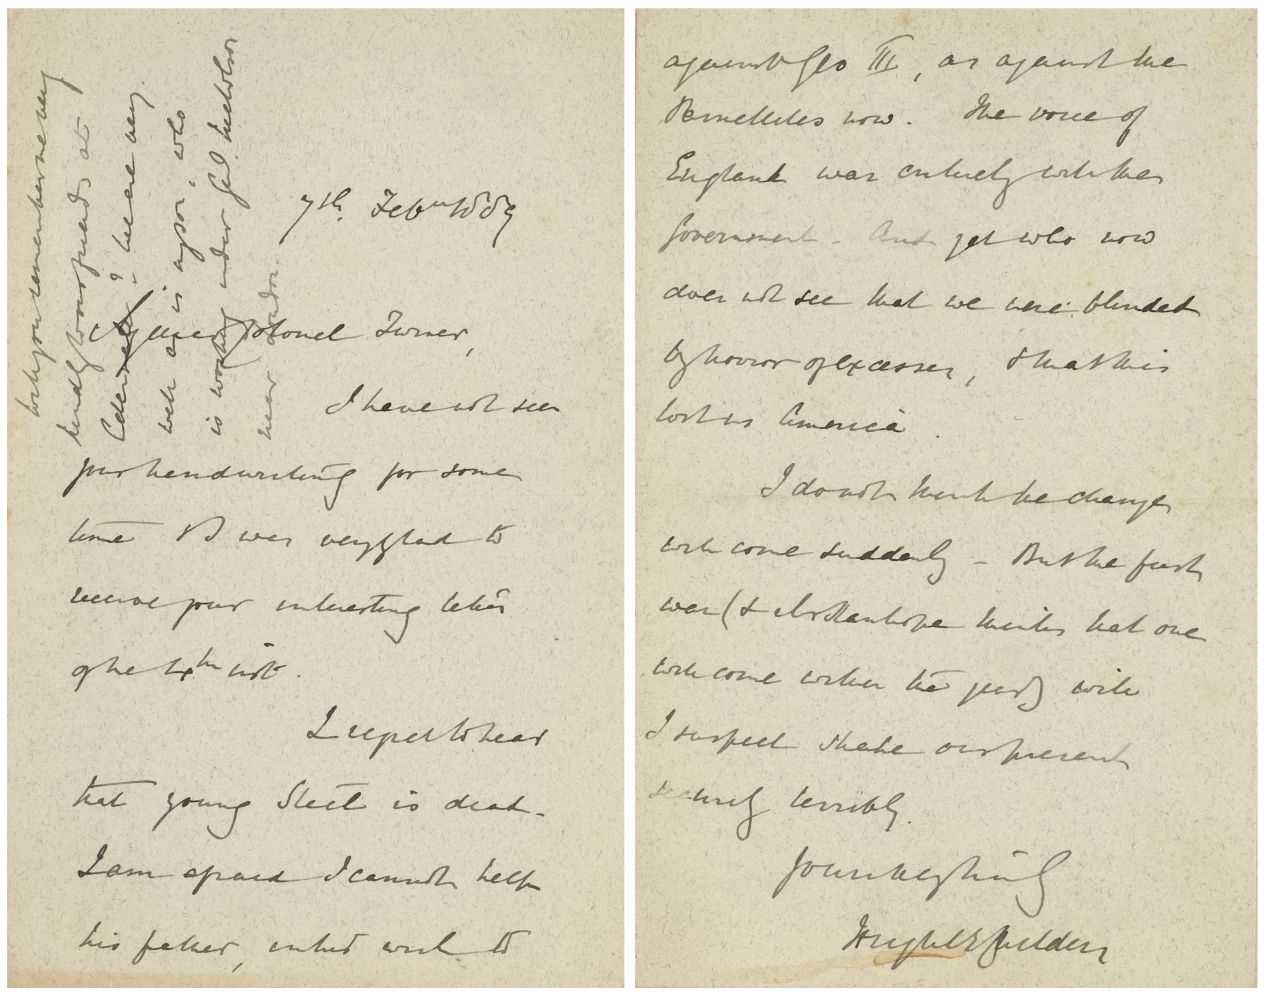 7th. Feby 1889
My dear Colonel Turner,
I have not seen
your handwriting for some
time & was very glad to
receive your interesting letter
of the 4th inst.
I regret to hear
that young Steel is dead.
I am afraid I cannot help
his father, in his wish to
will you remember me very
kindly to our friends at
I hear very
well of your son, who
is working under Genl. Nicholson
near London.
against Geo III, as against the
Parnellites now. The voice of
England was entirely with the
Government. And yet who now
does not see that we were blinded
by horror of excesses, & that this
lost us America.
I do not think the changes
will come suddenly - But the first
war (& Stanhope thinks that one
will come within the year) will
I suspect shake our present
security terribly.
Yours very truly